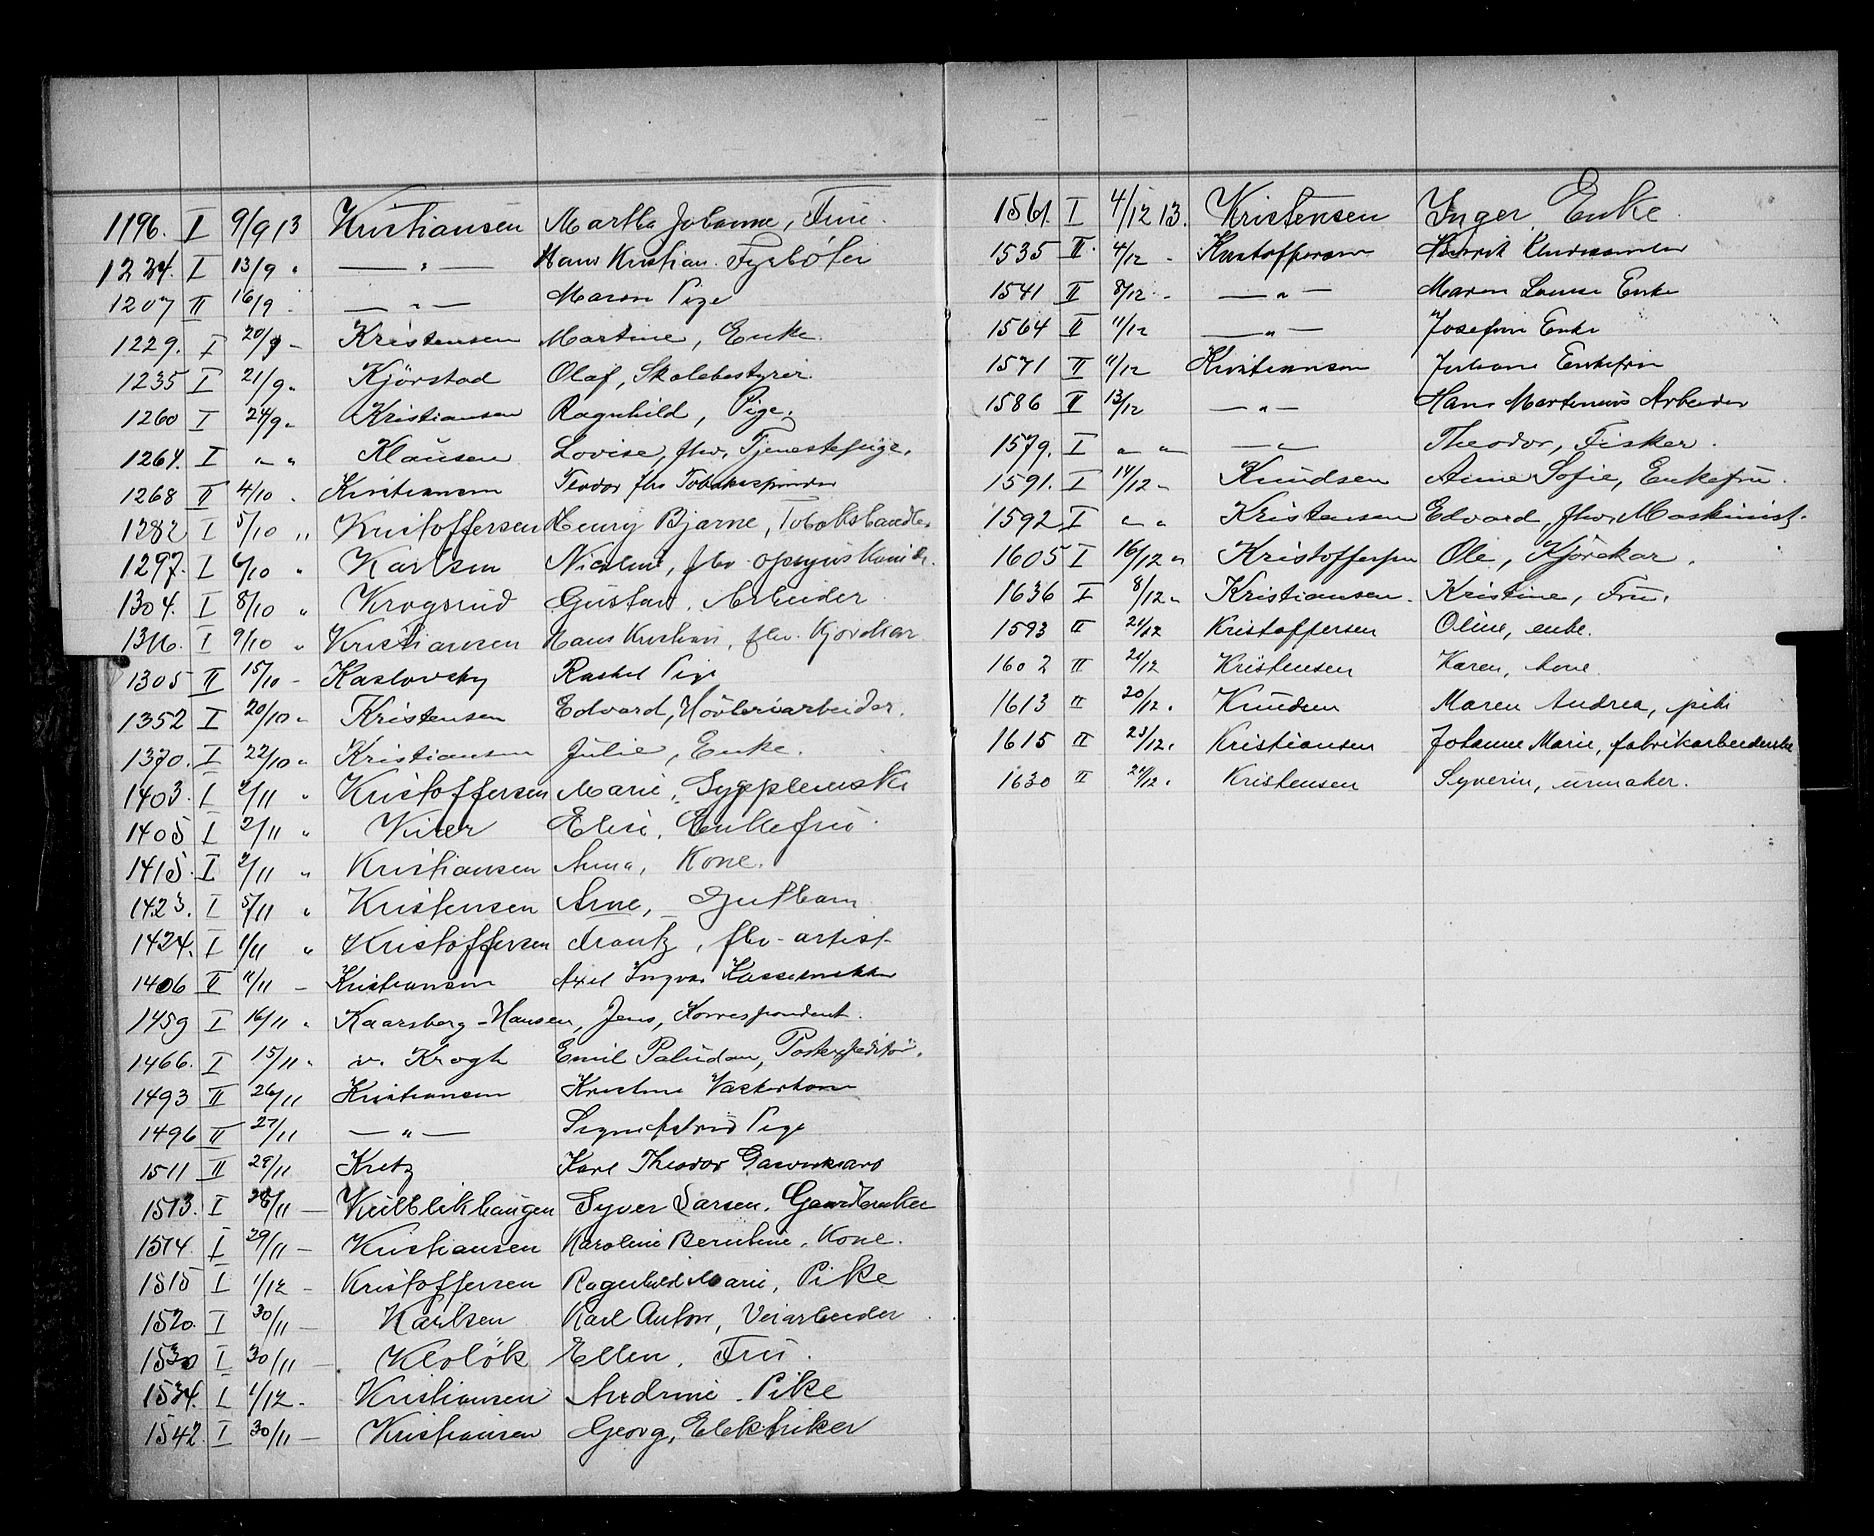 1196. I 9/9 13 Kristiansen Martha Johanne, Frue.
1224. I 13/9 " — " — Hans Kristian. Fyrbøter
1207 II 16/9 — " — Maren Pige
1229. I 20/9 — Kristensen Martine, Enke.
1235 I 21/9 " Kjörstad Olaf, Skolebestyrer.
1260 I 24/9 " Kristiansen Ragnhild, Pige.
1264. I " " Klausen Lovise, fhv. Tjenestepige.
1268 II 4/10 " Kristiansen Teodor fhv Tobakspinder
1282 I 5/10 " Kristoffersen Henry Bjarne, Tobakshandler
1297. I 6/10 " Karlsen Nicolai, fhv.
1304. I 8/10 " Krogsrud Gustav. Arbeider
1316. I 9/10 " Kristiansen Hans Kristian, fhv. Kjørekar
1305 II 15/10 — Kaslovsky Rachel Pige
1352 I 20/10 " Kristensen Edvard, Høvleriarbeider.
1370. I 22/10 " Kristiansen Julie, Enke.
1403. I 2/11 " Kristoffersen Marie, Sypleierske
1405 I 2/11 " Kiær Elise, Enkefru.
1415. I 2/11 " Kristiansen Anna, Kone.
1423. I 5/11 " Kristensen Arne, Gutbarn
1424. I 1/11 " Kristoffersen Frantz, fhv. artist
1406 II 11/11 — Kristiansen Axel Ingvar Kassemaker
1459 I 16/11 " Kaarsberg-Hansen, Jens, Korrespondent.
1466. I 15/11 " v. Krogh Emil Paludan, Postexpeditör.
1493 II 26/11 Kristiansen Kristine Vaskerkone
1496 II 27/11 — " — Signe Astrid Pige
1511 II 29/11 Kretz Karl Theodor
1513. I 28/11 — Kulblikhaugen Syver Larsen. Gaardbruker
1514. I 29/11 — Kristiansen Karoline Berntine, Kone.
1515 I 1/12 — Kristoffersen Ragnhild Marie, Pike
1520. I 30/11 — Karlsen Karl Anton, Veiarbeider.
1530 I 30/11 — Kloløk Ellen, Fru.
1534. I 1/12. Kristiansen Andrine. Pike
1542. I 30/11 — Kristiansen Georg, Elektriker
1561. I 4/12 13. Kristensen Inger, Enke.
1535 II. 4/12 " Kristoffersen Henrik
1541 II 8/12 " — " — Maren Louise Enke
1564 II 11/12 — " — Josefine Enke
1571 II 11/12 Kristiansen Juliane Enkefru
1586 II 13/12 — " — Hans Martinius Arbeider
1579. I " " — " — Theodor, Fisker.
1591. I 14/12 " Knudsen Anne Sofie, Enkefru.
1592 I " " Kristensen Edvard, fhv. Maskinist.
1605 I 16/12 " Kristoffersen Ole, Kjörekar.
1636 I 8/12 " Kristiansen. Kristine, Fru.
1593 II 21/12 Kristoffersen Oline, enke.
1602 II 21/12 Kristensen Karen, kone.
1613 II 20/12. Knudsen Maren Andrea, pike
1615 II 23/12. Kristiansen Johanne Marie, fabrikarbeiderske
1630 II 24/12. Kristensen Syverin, urmaker.